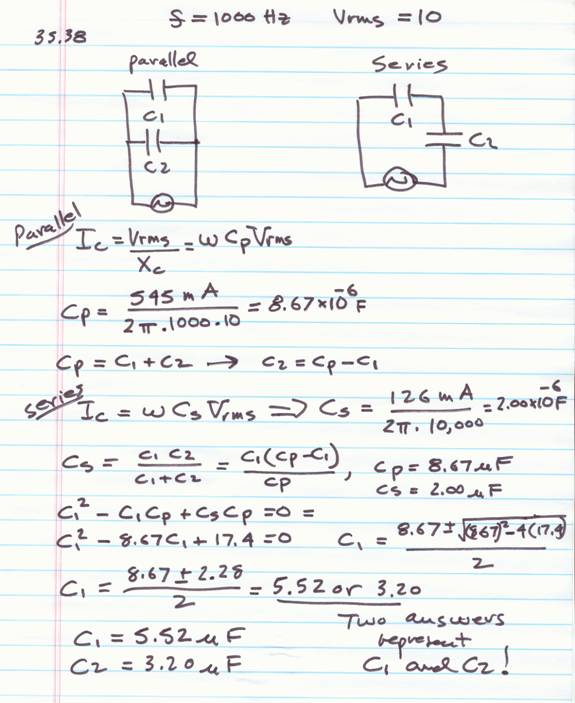 f = 1000 Hz Vrms = 10
35.38
parallel Series
C1 C1 C2
C2
Parallel Ic = Vrms/Xc = ω Cp Vrms
Cp = 545 mA / 2π.1000.10 = 8.67×10^-6 F
Cp = C1 + C2 → C2 = Cp − C1
Series Ic = ω Cs Vrms ⇒ Cs = 126 mA / 2π. 10,000 = 2.00×10^-6 F
Cs = C1 C2 / C1 + C2 = C1(Cp − C1) / Cp , Cp = 8.67 μF
Cs = 2.00 μF
C1² − C1Cp + CsCp = 0 =
C1² − 8.67C1 + 17.4 = 0 C1 = 8.67 ± √(8.67)² − 4(17.4) / 2
C1 = 8.67 ± 2.28 / 2 = 5.52 or 3.20
Two answers
C1 = 5.52 μF represent
C2 = 3.20 μF C1 and C2!